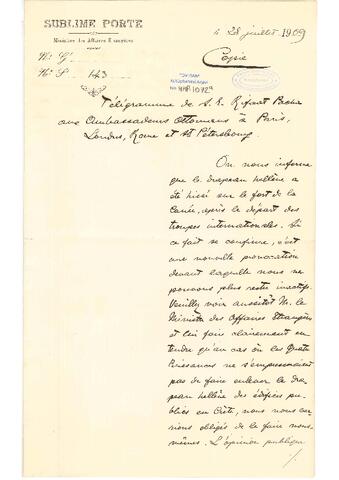 SUBLIME PORTE
Ministère des Affaires Etrangères
le 28 juillet 1909
No G
No S 143
Copie
Télégramme de S. E. Rifaat Pacha
aux Ambassadeurs Ottomans à Paris,
Londres, Rome et St Pétersbourg.
On nous informe
que le drapeau hellène a
été hissé sur le fort de la
Canée, après le départ des
troupes internationales. Si
ce fait se confirme, c'est
une nouvelle provocation
devant laquelle nous ne
pouvons plus rester inactifs.
Veuillez voir aussitôt Mr. le
Ministre des Affaires Etrangères
et lui faire clairement en-
tendre qu'au cas où les Quatre
Puissances ne s'empresseraient
pas de faire enlever le dra-
peau hellène des édifices pu-
bliés en Crète, nous nous ver-
rions obligés de le faire nous-
mêmes. L'opinion publique